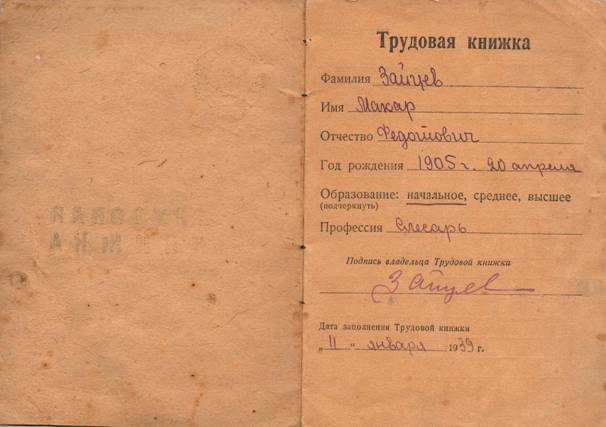 Трудовая книжка
Фамилия Зайцев
Имя Макар
Отчество Федотович
Год рождения 1905 г. 20 апреля
Образование: начальное, среднее, высшее
(подчеркнуть)
Профессия Слесарь
Подпись владельца Трудовой книжки
Зайцев
Дата заполнения Трудовой книжки
„11" января 1939 г.